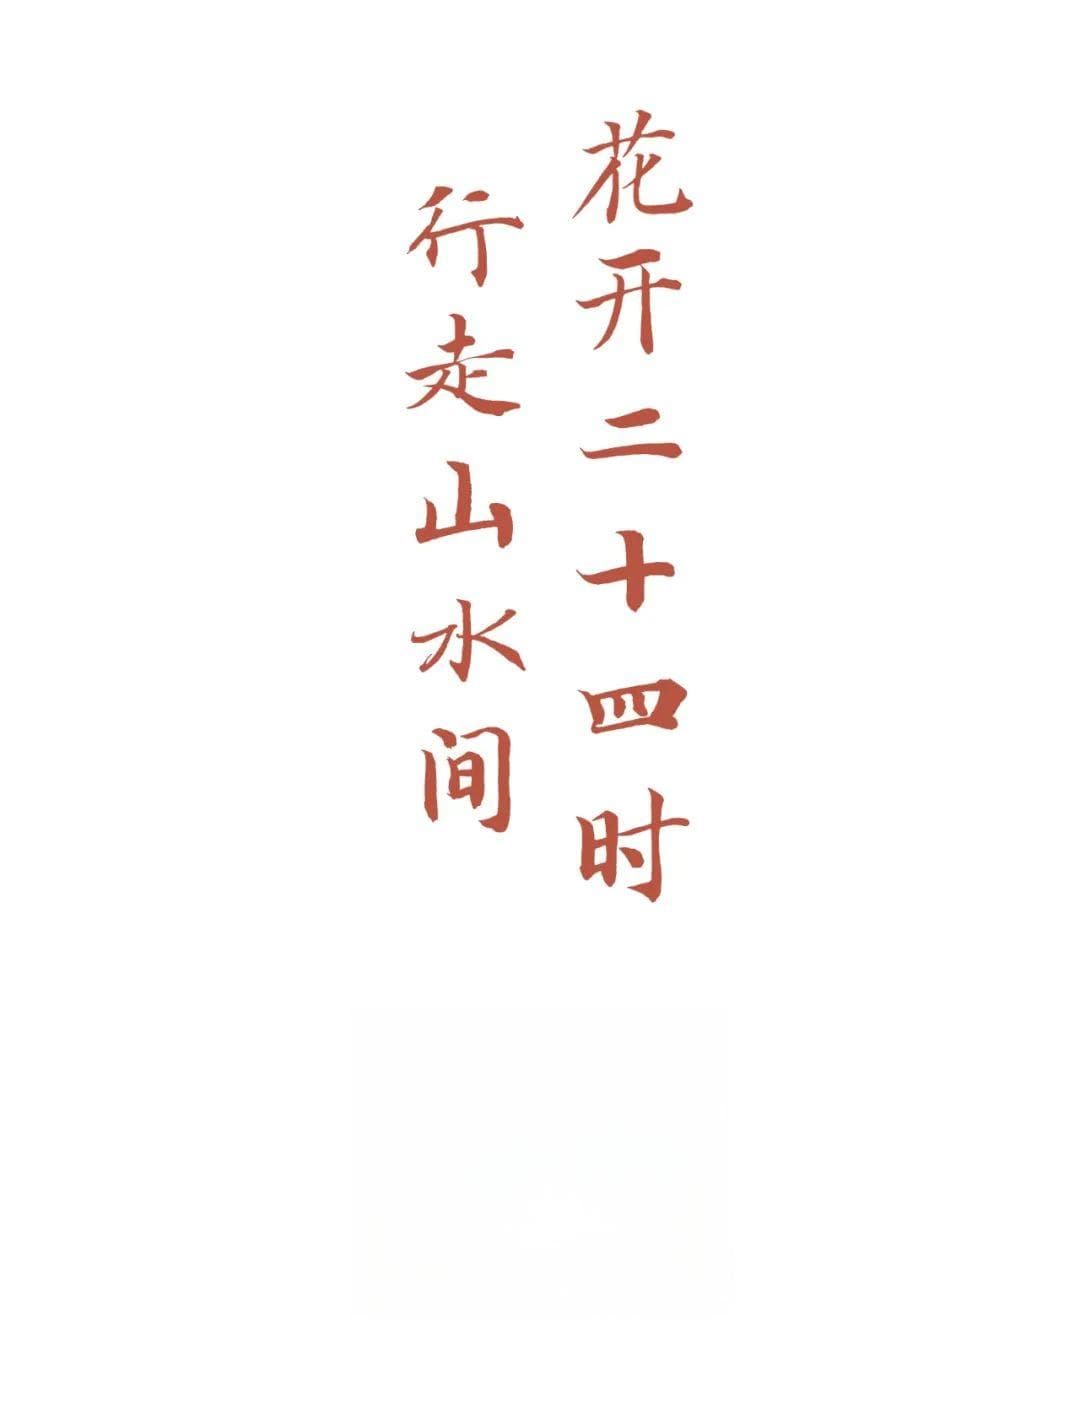 花开二十四时
行走山水间